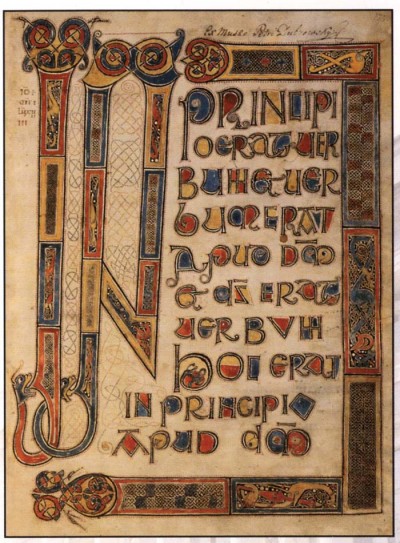 Ex Museo Petri Dubrowsky
IN PRINCIPI
O ERAT UER
BUM ET UER
BUM ERAT
APUD DM̄
ET DS̄ ERAT
UERBUM
hOC ERAT
IN PRINCIPIO
APUD DM̄